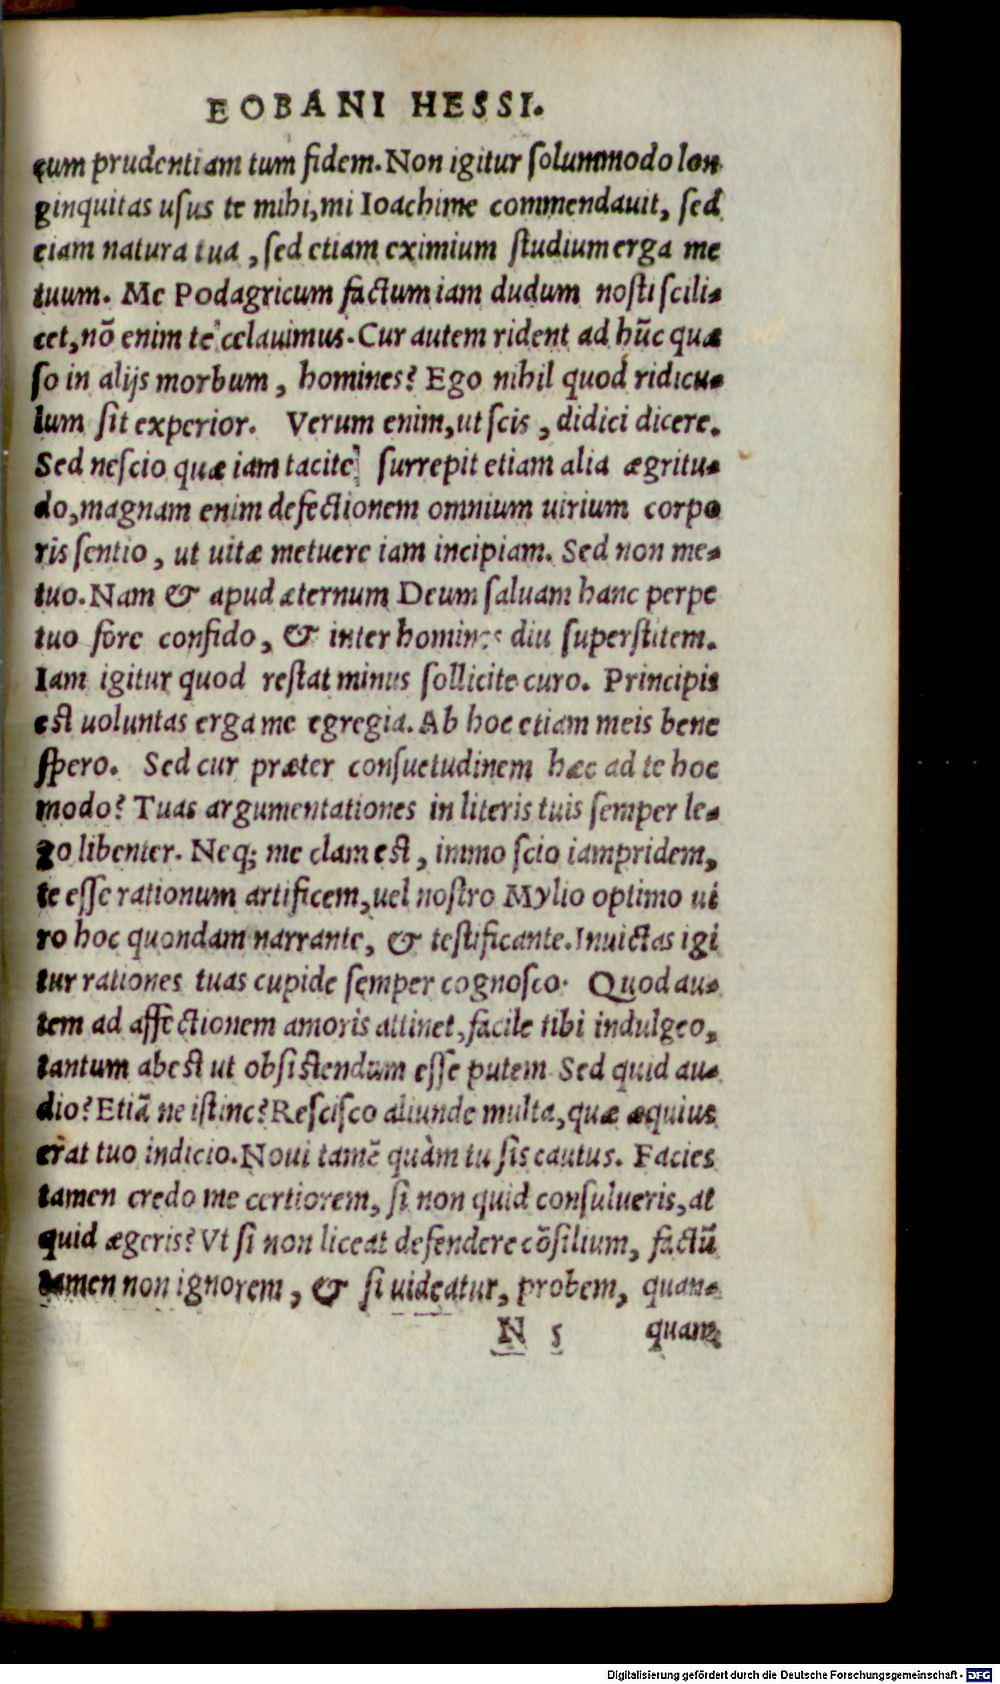 EOBANI HESSI.
cum prudentiam tum fidem. Non igitur solummodo lon
ginquitas usus te mihi, mi Ioachime commendauit, sed
etiam natura tua, sed etiam eximium studium erga me
tuum. Me Podagricum factum iam dudum nosti scili-
cet, nõ enim te celauimus. Cur autem rident ad hũc quæ
so in alijs morbum, homines? Ego nihil quod ridicu-
lum sit experior. Verum enim, ut scis, didici dicere.
Sed nescio quæ iam tacite surrepit etiam alia ægritu-
do, magnam enim defectionem omnium uirium corpo
ris sentio, ut uitæ metuere iam incipiam. Sed non me-
tuo. Nam & apud æternum Deum saluam hanc perpe
tuo fore confido, & inter homines diu superstitem.
Iam igitur quod restat minus sollicite curo. Principis
est uoluntas erga me egregia. Ab hoc etiam meis bene
spero. Sed cur præter consuetudinem hæc ad te hoc
modo? Tuas argumentationes in literis tuis semper le-
go libenter. Neq; me clam est, immo scio iampridem,
te esse rationum artificem, uel nostro Mylio optimo ui
ro hoc quondam narrante, & testificante. Inuictas igi
tur rationes tuas cupide semper cognosco. Quod au-
tem ad affectionem amoris attinet, facile tibi indulgeo,
tantum abest ut obsistendum esse putem. Sed quid au-
dio? Etiã ne istinc? Rescisco aliunde multa, quæ æquius
erat tuo indicio. Noui tamẽ quàm tu sis cautus. Facies
tamen credo me certiorem, si non quid consulueris, at
quid ægeris? Vt si non liceat defendere cõsilium, factũ
tamen non ignorem, & si uideatur, probem, quan-
N 5 quam
Digitalisierung gefördert durch die Deutsche Forschungsgemeinschaft - DFG